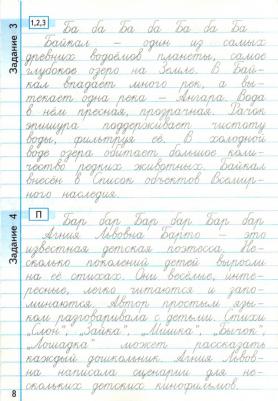 Задание 3
1,2,3
Ба ба Ба ба Ба ба Ба
Байкал – один из самых
древних водоёмов планеты, самое
глубокое озеро на Земле. В Бай-
кал впадает много рек, а вы-
текает одна река – Ангара. Вода
в нём пресная, прозрачная. Рачок
эпишура поддерживает чистоту
воды, фильтруя её. В холодной
воде озера обитает большое коли-
чество редких животных. Байкал
внесён в Список объектов Всемир-
ного наследия.
Задание 4
П
Бар бар Бар бар Бар бар
Агния Львовна Барто – это
известная детская поэтесса. Не-
сколько поколений детей выросли
на её стихах. Они весёлые, инте-
ресные, легко читаются и запо-
минаются. Автор простым язы-
ком разговаривала с детьми. Стихи
"Слон", "Зайка", "Мишка", "Бычок",
"Лошадка" может рассказать
каждый дошкольник. Агния Львов-
на написала сценарии для не-
скольких детских кинофильмов.
8